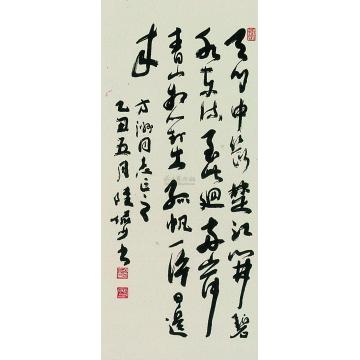 天门中断楚江開碧
水东流至此廻两岸
青山相对出孤帆一片日邊
来
同志正之
乙丑五月陸儼少书